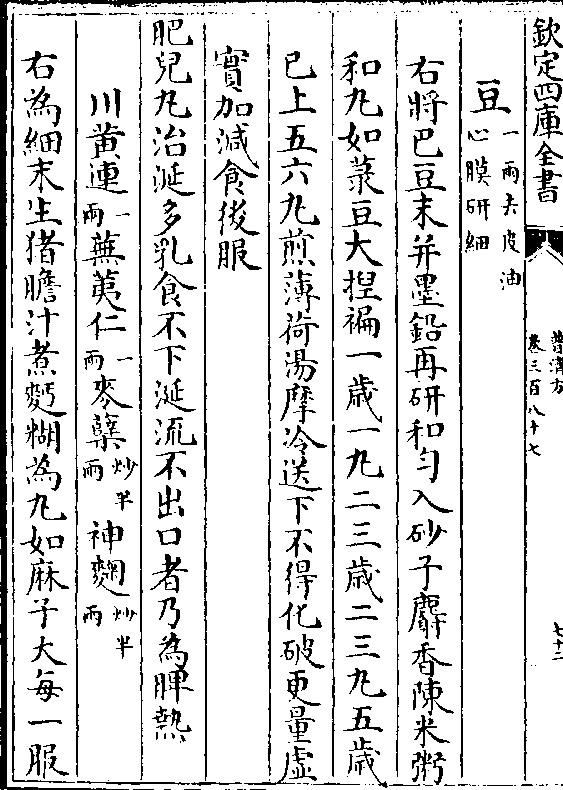 欽定四庫全書
普濟方
卷三百八十七
七十二
豆一兩去皮油心膜研細
右將巴豆末并墨鉛再研和勻入砂子麝香陳米粥
和九如菉豆大捏褊一歳一九二三歳二三九五歳
已上五六九煎薄荷湯摩冷送下不得化破更量虚
實加減食後服
肥兒九治涎多乳食不下涎流不出口者乃為脾熱
川黄連一兩蕪荑仁一兩麥糵炒半兩神麴炒半兩
右為細末生猪膽汁煮麪糊為九如麻子大每一服